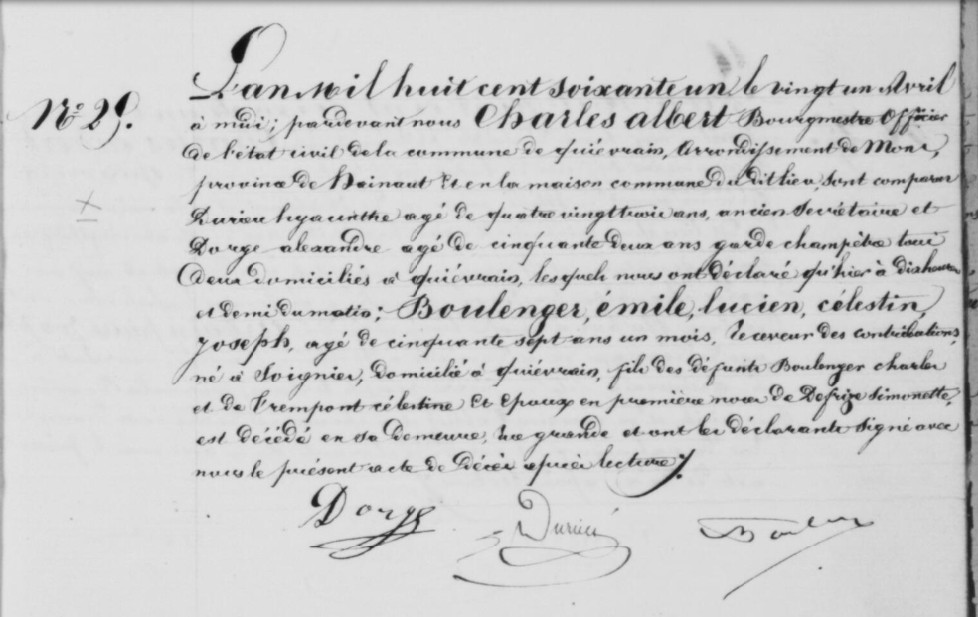 L'an Mil huit cent soixante un, le vingt un Avril
N.° 29.
à midi; pardevant nous Charles albert Bourgmestre Officier
de l'état civil de la commune de quiévrain, Arrondissement de Mons,
province de Hainaut Et en la maison commune du dit lieu, sont comparus
Durieu hyacinthe agé de quatre vingt trois ans, ancien Secrétaire et
Dorge alexandre agé de cinquante deux ans garde champêtre tous
deux domiciliés à quiévrain, lesquels nous ont déclaré qu'hier à dix heures
et demi du matin; Boulenger, émile, lucien, célestin,
joseph, agé de cinquante sept ans un mois, Receveur des contributions,
né à Soignies, domicilié à quiévrain, fils des défunts Boulenger charles
et de Trempont célestine Et Epoux en première noces de Defrize Simonette,
est décédé en sa demeure, rue grande et ont les déclarants signé avec
nous le présent acte de décès après lecture
Dorge Durieu